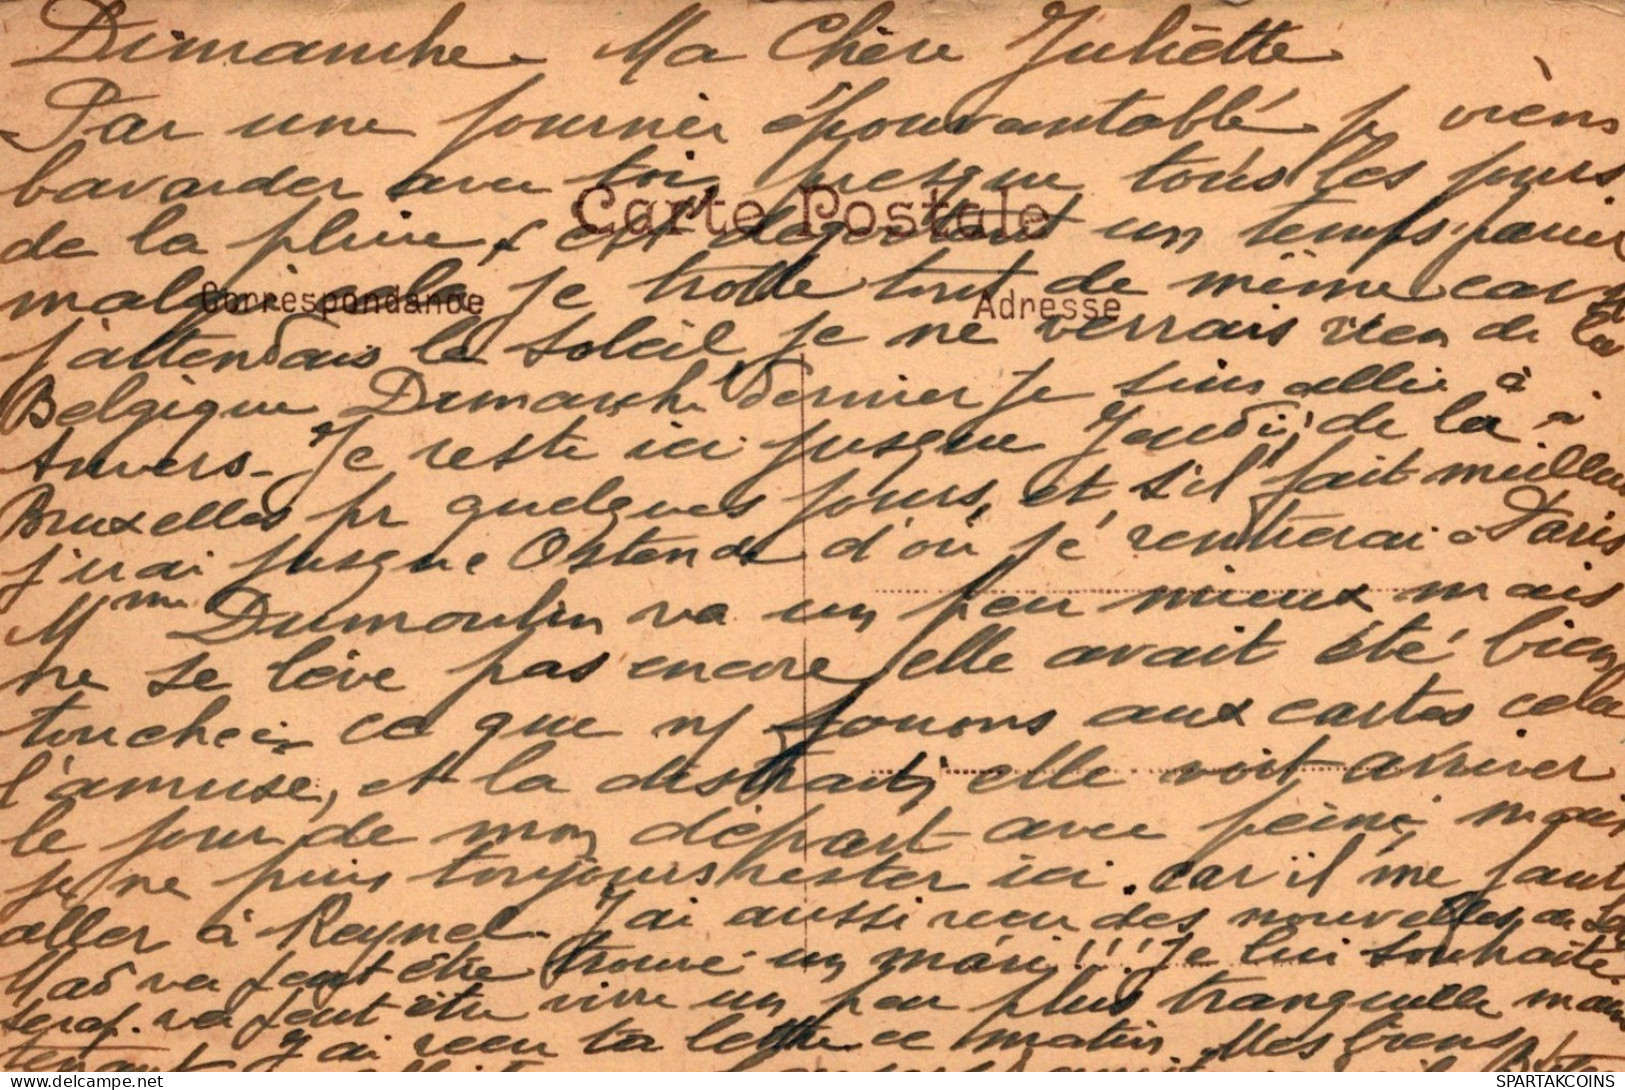 Dimanche. Ma Chère Juliette
Par une journée épouvantable je viens
bavarder avec toi, presque tous les jours
Carte Postale
de la pluie, c'est dégoutant un temps pareil
malgré cela je trotte tout de même car si
Correspondance Adresse
j'attendais le soleil je ne verrais rien de la
Belgique, Dimanche dernier je suis allée à
Anvers. Je reste ici jusque Jeudi, de là à
Bruxelles pr quelques jours, et s'il fait meilleur
j'irai jusque Ostende d'où je rentrerai à Paris
Mme Dumoulin va un peu mieux mais
ne se lève pas encore, elle avait été bien
touchée, ce que ns jouons aux cartes cela
l'amuse, et la distrait, elle voit arriver
le jour de mon départ avec peine, mais
je ne puis toujours rester ici. car il me faut
aller à Reynel. J'ai aussi reçu des nouvelles de
Mad va peut être trouvé un mari!!! Je lui souhaite
va peut être vivre un peu plus tranquille main
tenant J'ai reçu ta lettre ce matin. Mes biens
SPARTAKCOINS